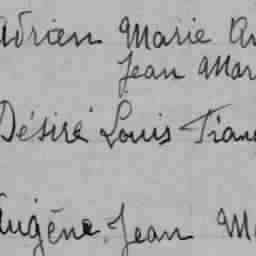 Adrien Marie
Jean Mar
Désiré Louis
Eugène, Jean